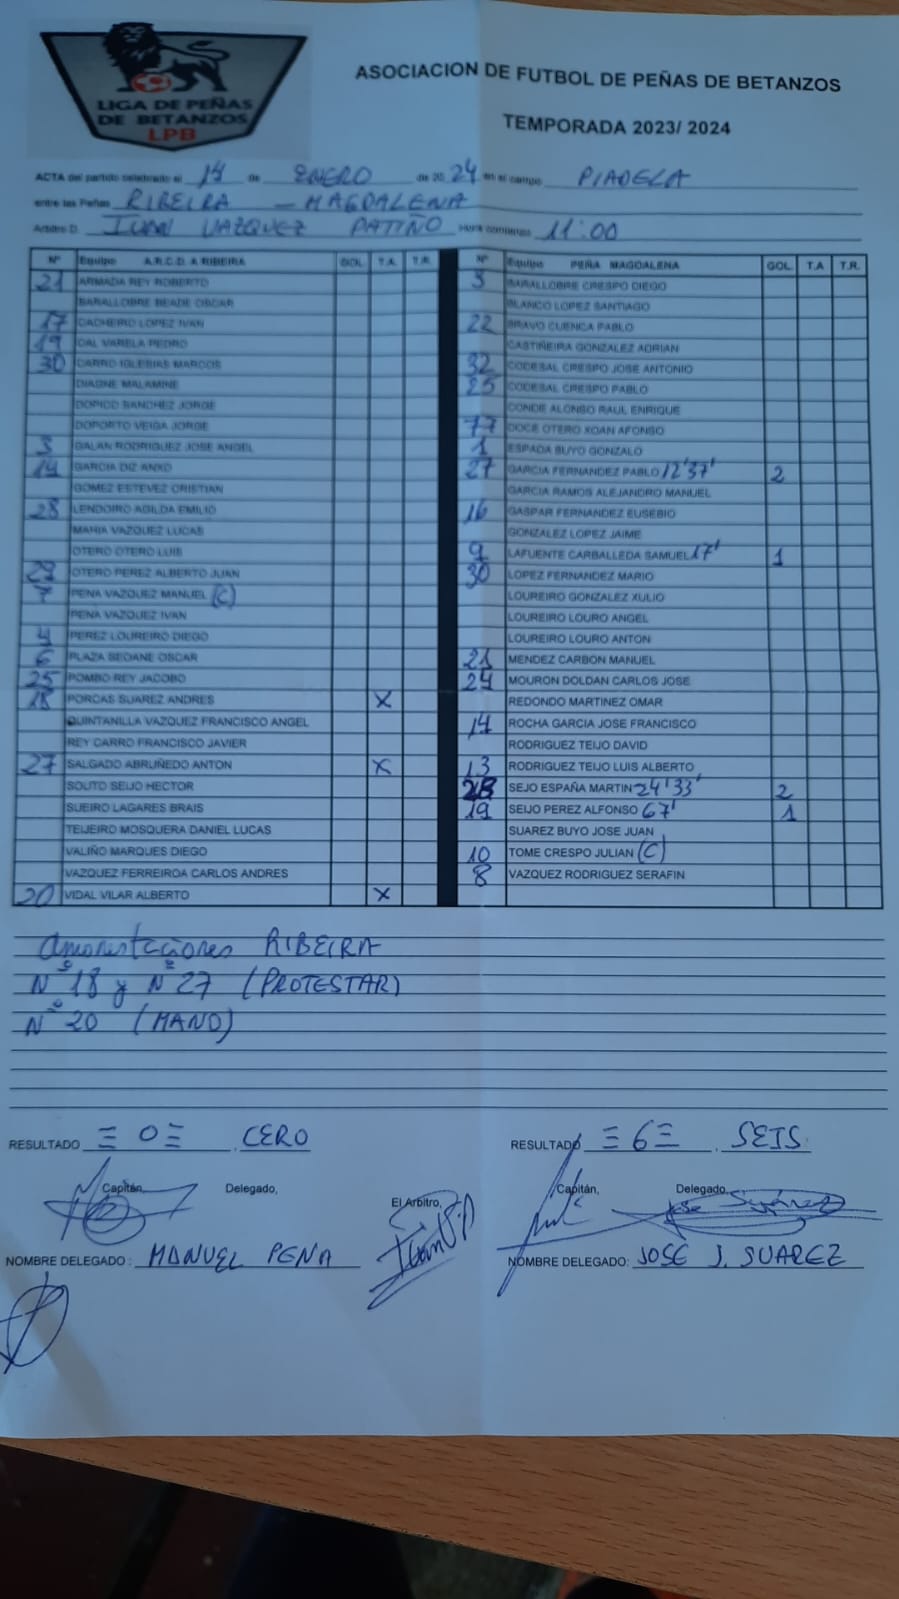 LIGA DE PEÑAS
DE BETANZOS
LPB
ASOCIACION DE FUTBOL DE PEÑAS DE BETANZOS
TEMPORADA 2023/ 2024
ACTA del partido celebrado el 14 de ENERO de 20 24 en el campo PIADELA
entre las Peñas RIBEIRA - MAGDALENA
Arbitro D. IVAN VAZQUEZ PATIÑO Hora comienzo 11:00
Nº Equipo A.R.C.D. A RIBEIRA GOL T.A. T.R.
21 ARMADA REY ROBERTO
BARALLOBRE BEADE OSCAR
17 CACHEIRO LOPEZ IVAN
19 CAL VARELA PEDRO
30 CARRO IGLESIAS MARCOS
DIAGNE MALAMINE
DOPICO SANCHEZ JORGE
DOPORTO VEIGA JORGE
3 GALAN RODRIGUEZ JOSE ANGEL
14 GARCIA DIZ ANXO
GOMEZ ESTEVEZ CRISTIAN
28 LENDOIRO AGILDA EMILIO
MARIA VAZQUEZ LUCAS
OTERO OTERO LUIS
OTERO PEREZ ALBERTO JUAN
7 PENA VAZQUEZ MANUEL (C)
PENA VAZQUEZ IVAN
4 PEREZ LOUREIRO DIEGO
6 PLAZA SEOANE OSCAR
25 POMBO REY JACOBO
18 PORCAS SUAREZ ANDRES X
QUINTANILLA VAZQUEZ FRANCISCO ANGEL
REY CARRO FRANCISCO JAVIER
27 SALGADO ABRUÑEDO ANTON X
SOUTO SEIJO HECTOR
SUEIRO LAGARES BRAIS
TEIJEIRO MOSQUERA DANIEL LUCAS
VALIÑO MARQUES DIEGO
VAZQUEZ FERREIROA CARLOS ANDRES
20 VIDAL VILAR ALBERTO X
Nº Equipo PEÑA MAGDALENA GOL T.A T.R.
3 BARALLOBRE CRESPO DIEGO
BLANCO LOPEZ SANTIAGO
22 BRAVO CUENCA PABLO
CASTIÑEIRA GONZALEZ ADRIAN
32 CODESAL CRESPO JOSE ANTONIO
25 CODESAL CRESPO PABLO
CONDE ALONSO RAUL ENRIQUE
77 DOCE OTERO XOAN AFONSO
1 ESPADA BUYO GONZALO
27 GARCIA FERNANDEZ PABLO 12' 37' 2
GARCIA RAMOS ALEJANDRO MANUEL
16 GASPAR FERNANDEZ EUSEBIO
GONZALEZ LOPEZ JAIME
9 LAFUENTE CARBALLEDA SAMUEL 17' 1
30 LOPEZ FERNANDEZ MARIO
LOUREIRO GONZALEZ XULIO
LOUREIRO LOURO ANGEL
LOUREIRO LOURO ANTON
21 MENDEZ CARBON MANUEL
24 MOURON DOLDAN CARLOS JOSE
REDONDO MARTINEZ OMAR
14 ROCHA GARCIA JOSE FRANCISCO
RODRIGUEZ TEIJO DAVID
13 RODRIGUEZ TEIJO LUIS ALBERTO
SEJO ESPAÑA MARTIN 24' 33' 2
19 SEIJO PEREZ ALFONSO 67' 1
SUAREZ BUYO JOSE JUAN
10 TOME CRESPO JULIAN (C)
8 VAZQUEZ RODRIGUEZ SERAFIN
Amonestaciones RIBEIRA
Nº 18 y Nº 27 (PROTESTAR)
Nº 20 (MANO)
RESULTADO 0 . CERO
RESULTADO 6 . SEIS
Capitán, Delegado, El Arbitro, Capitán, Delegado,
NOMBRE DELEGADO : MANUEL PENA
NOMBRE DELEGADO: JOSE J. SUAREZ